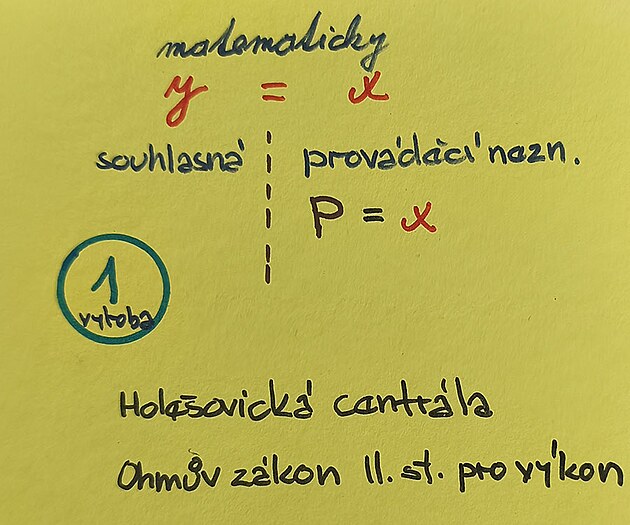 matematicky
y = x
souhlasná provádácí nazn.
P = x
1
výroba
Holešovická centrála
Ohmův zákon II. st. pro výkon